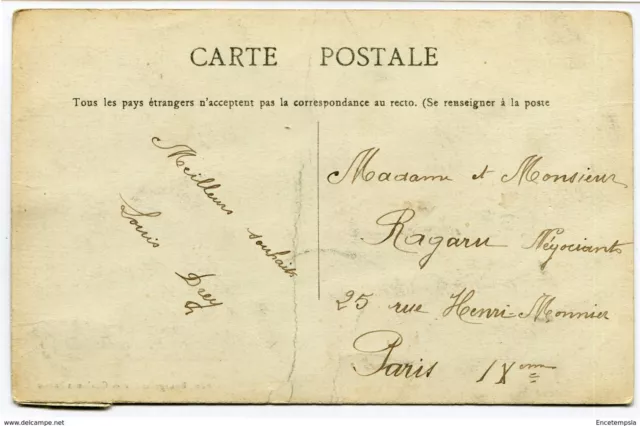 CARTE POSTALE
Tous les pays étrangers n'acceptent pas la correspondance au recto. (Se renseigner à la poste
Meilleurs souhaits
Louis Drey
Madame et Monsieur
Ragaru Négociants
25 rue Henri-Monnier
Paris IXeme
www.delcampe.net
Encetempsla